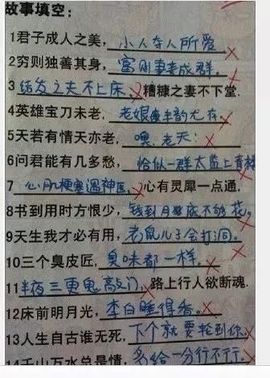 故事填空:
1君子成人之美, 小人夺人所爱
2穷则独善其身, 富则妻妾成群。
3结发之夫不上床, 糟糠之妻不下堂.
4英雄宝刀未老, 老娘风韵尤存
5天若有情天亦老, 噢,老天:
6问君能有几多愁, 恰似一群太监上青楼
7 心肌梗塞遇神医, 心有灵犀一点通,
8书到用时方恨少, 钱到月底不够花。
9天生我才必有用, 老鼠儿子会打洞。
10三个臭皮匠, 臭味都一样。
11半夜三更鬼敲门, 路上行人欲断魂.
12床前明月光, 李白睡得香。
13人生自古谁无死, 下个就要轮到你
14千山万水总是情, 多给一分行不行。